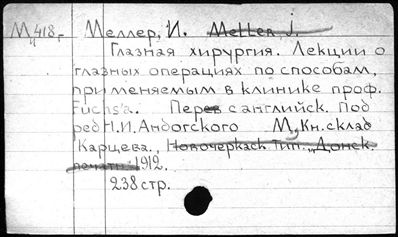 М 418,- Меллер, И. Meller J.
Глазная хирургия. Лекции о
глазных операциях по способам,
применяемым в клинике проф.
Fuchs'а. Перев с английск. Под
ред Н.И. Андогского М, Кн. склад
Карцева., Новочеркаск Тип. „Донск.
печати" 1912.
238 стр.